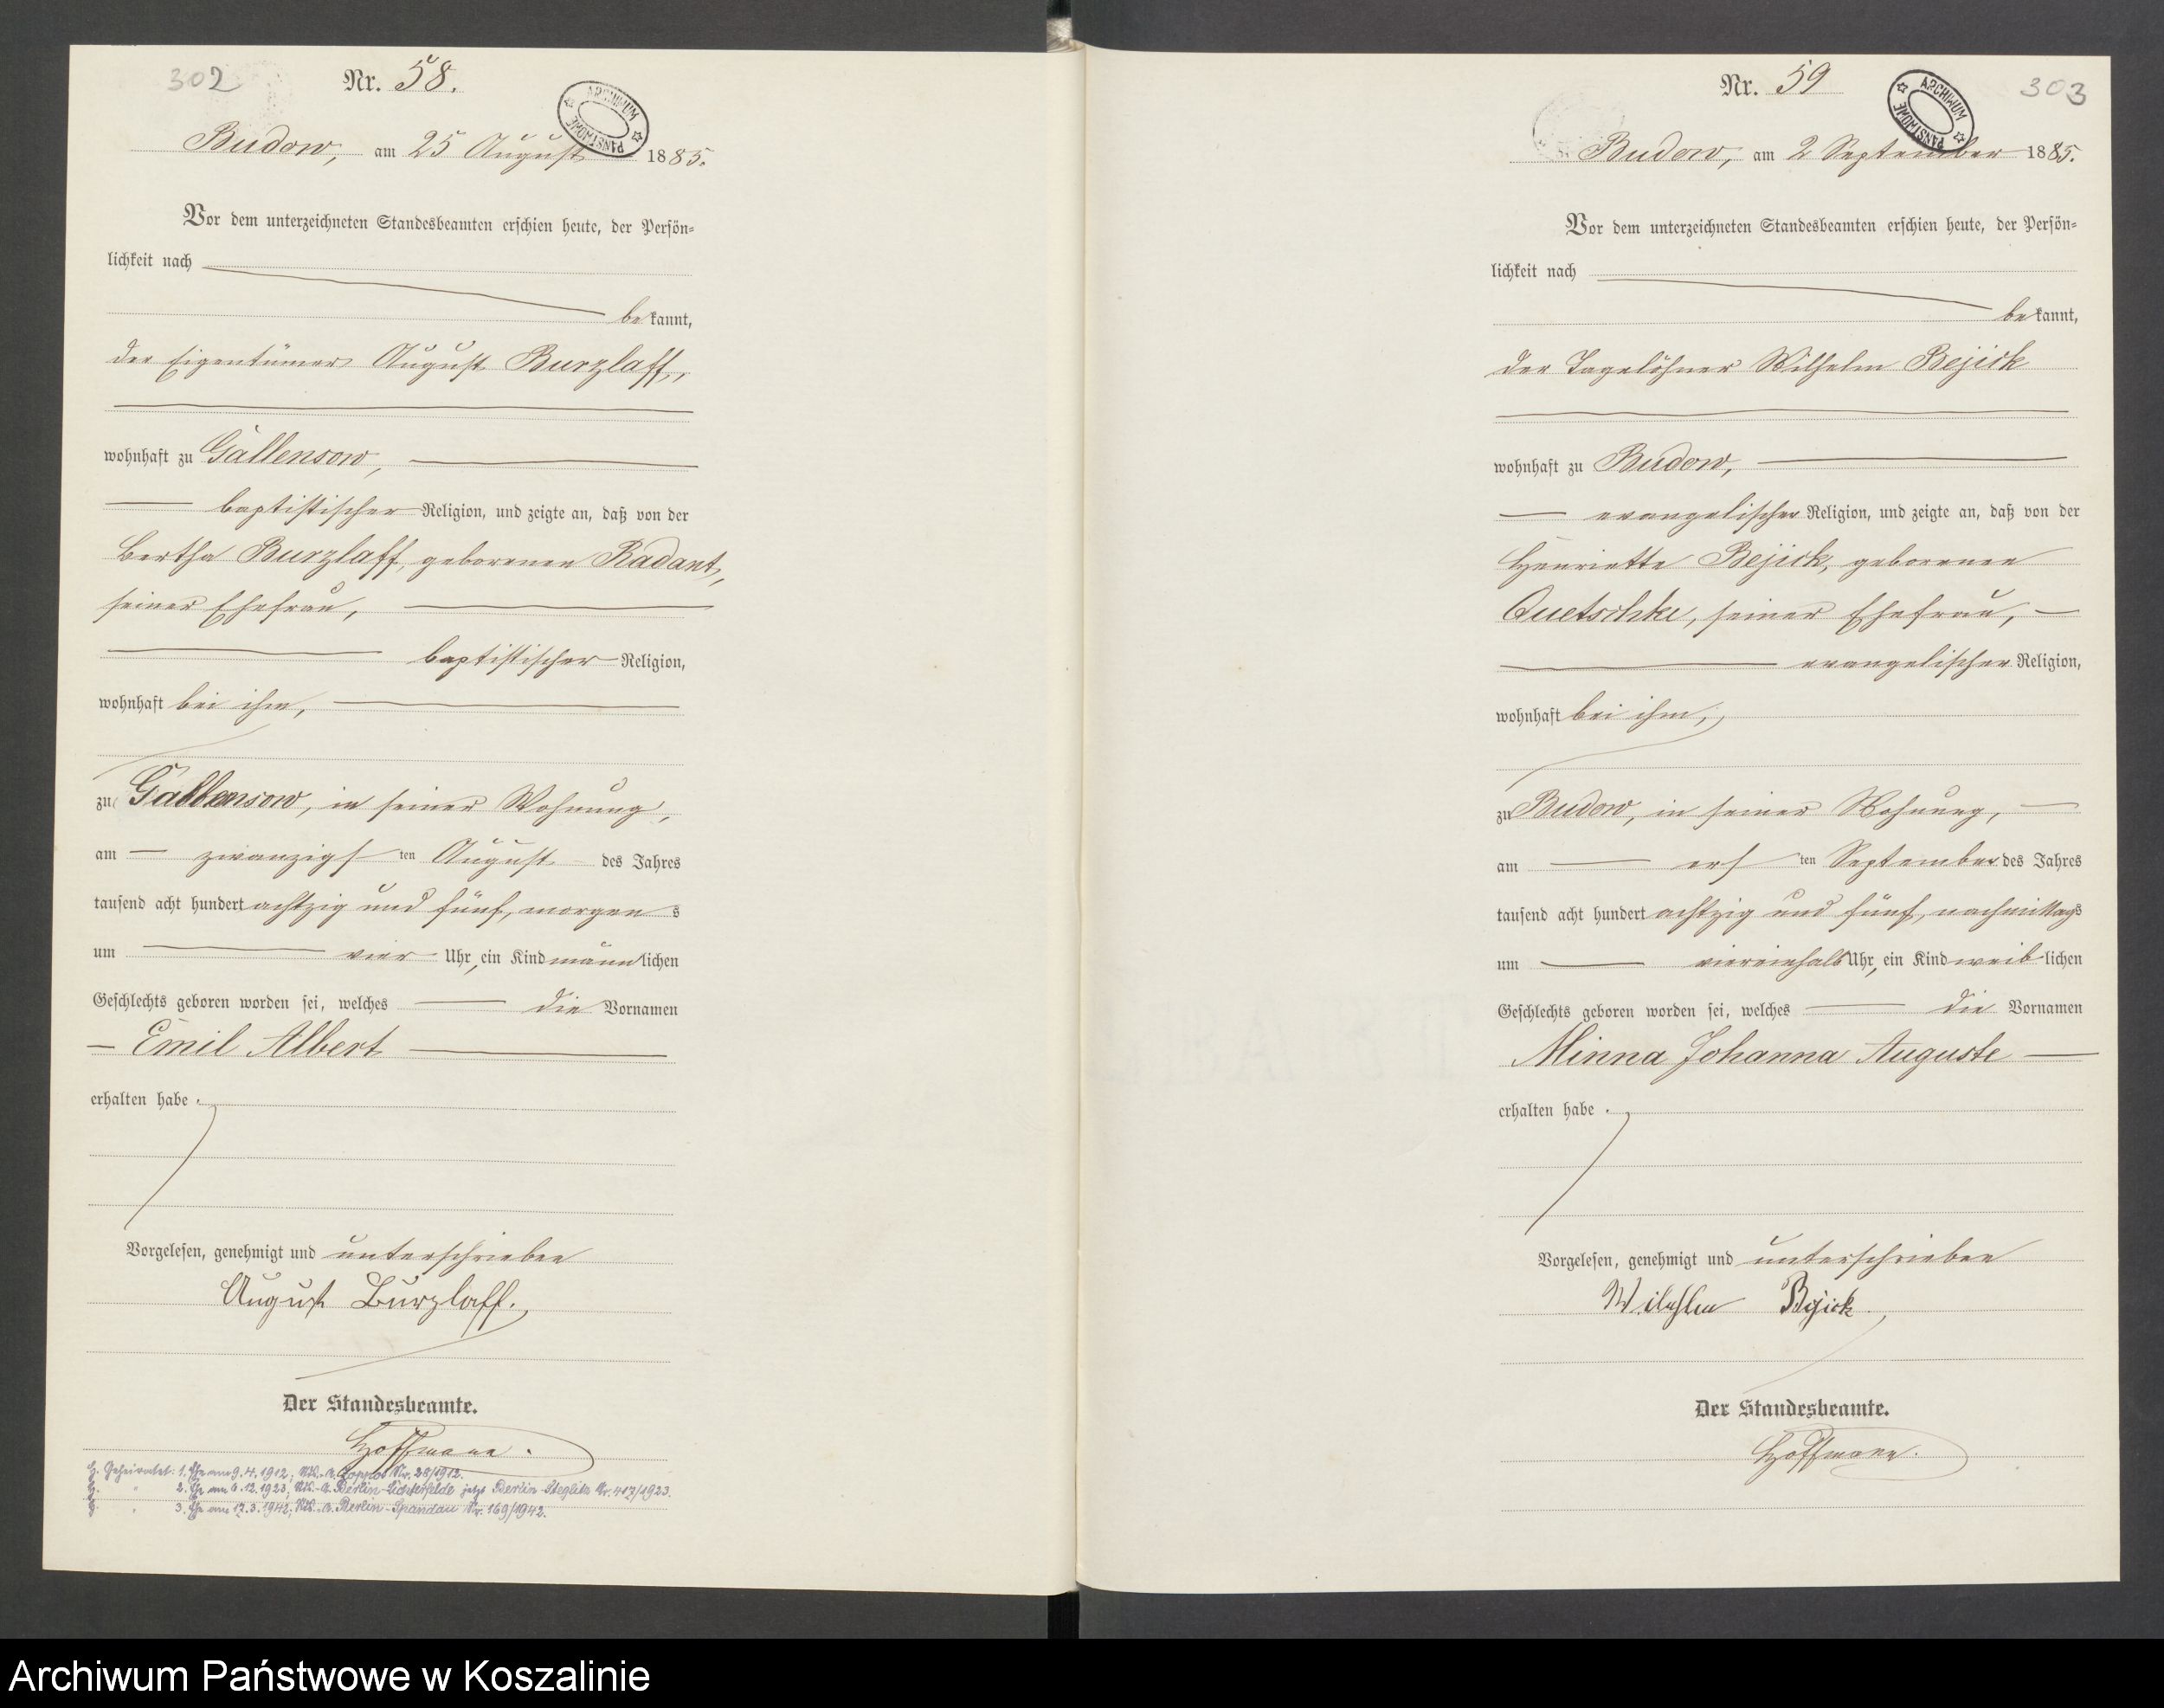 302
Nr. 58.
ARCHIWUM PAŃSTWOWE
Budow, am 25 August 1885.
Vor dem unterzeichneten Standesbeamten erschien heute, der Persön-
lichkeit nach
bekannt,
der Eigentümer August Burzlaff,
wohnhaft zu Gallensow,
baptistischer Religion, und zeigte an, daß von der
Bertha Burzlaff, geborenen Radant,
seiner Ehefrau,
baptistischer Religion,
wohnhaft bei ihm,
zu Gallensow, in seiner Wohnung,
am zwanzigsten August des Jahres
tausend acht hundert achtzig und fünf, morgens
um vier Uhr, ein Kind männlichen
Geschlechts geboren worden sei, welches die Vornamen
Emil Albert
erhalten habe.
Vorgelesen, genehmigt und unterschrieben
August Burzlaff.
Der Standesbeamte.
Hoffmann.
H. Geheiratet: 1. Ehe am 9.4.1912; Zoppot Nr. 28/1912.
H. " 2. Ehe am 6.12.1923; Berlin-Lichterfelde jetzt Berlin-Steglitz Nr. 417/1923.
H. " 3. Ehe am 17.3.1942; Berlin-Spandau Nr. 169/1942.
Nr. 59
303
ARCHIWUM PAŃSTWOWE
Budow, am 2 September 1885.
Vor dem unterzeichneten Standesbeamten erschien heute, der Persön-
lichkeit nach
bekannt,
der Tagelöhner Wilhelm Bejick
wohnhaft zu Budow,
evangelischer Religion, und zeigte an, daß von der
Henriette Bejick, geborenen
Quetschke, seiner Ehefrau,
evangelischer Religion,
wohnhaft bei ihm,
zu Budow, in seiner Wohnung,
am ersten September des Jahres
tausend acht hundert achtzig und fünf, nachmittags
um viereinhalb Uhr, ein Kind weiblichen
Geschlechts geboren worden sei, welches die Vornamen
Minna Johanna Auguste
erhalten habe.
Vorgelesen, genehmigt und unterschrieben
Wilhelm Bejick
Der Standesbeamte.
Hoffmann.
Archiwum Państwowe w Koszalinie